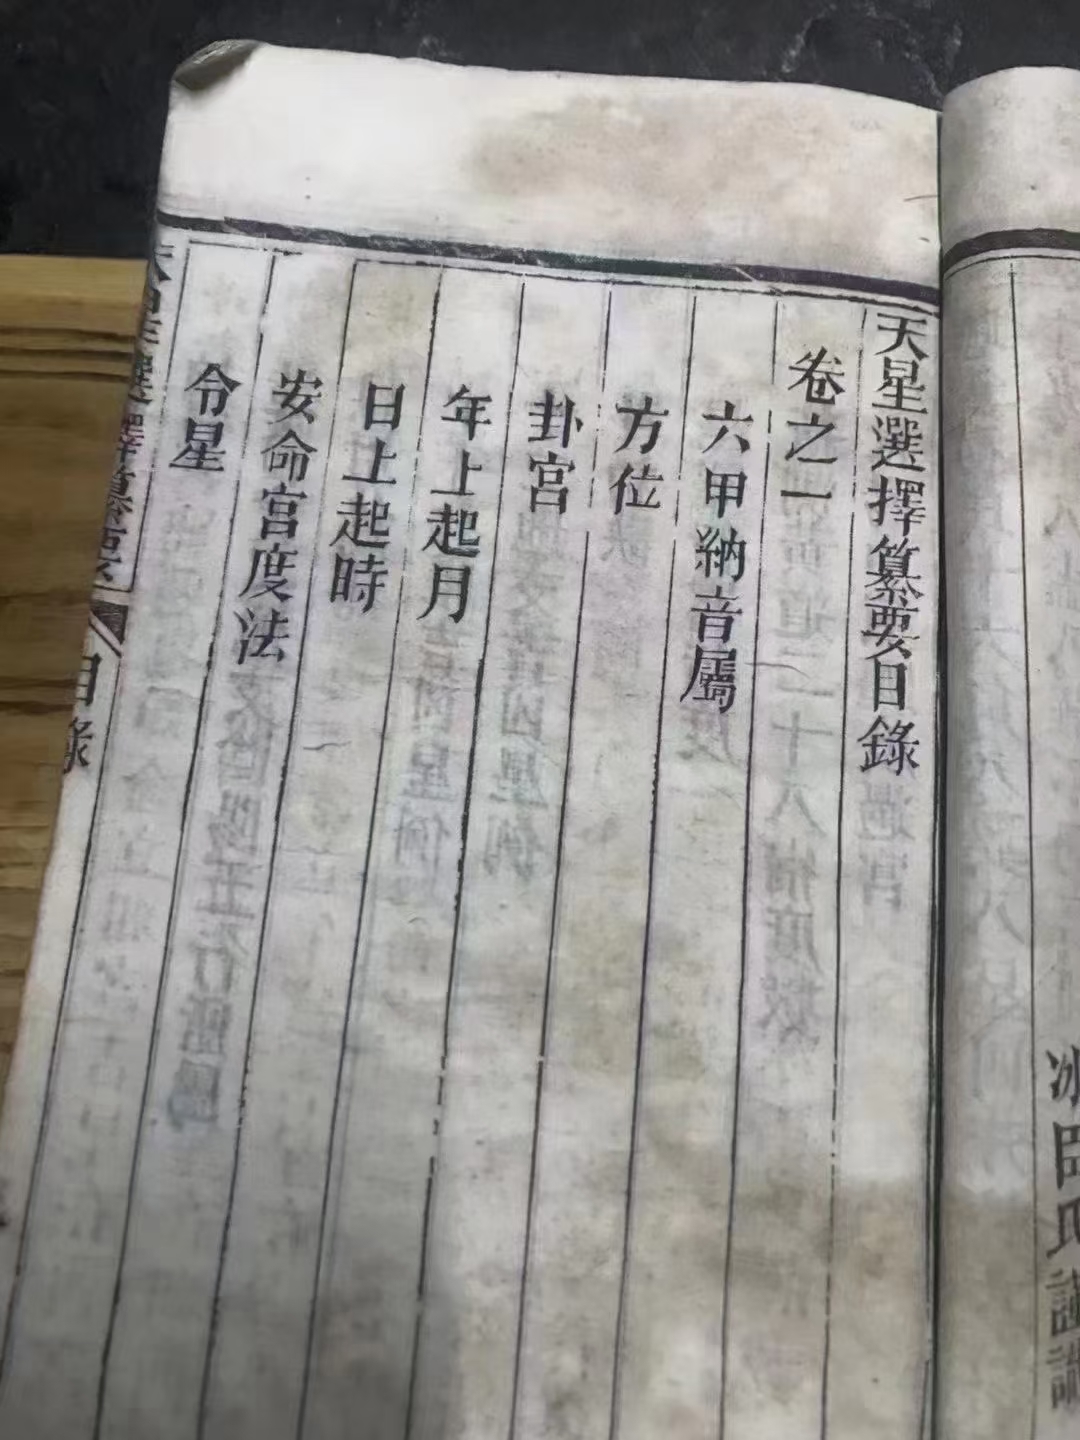 天星選擇纂要目錄
卷之一
六甲納音屬
方位
卦宮
年上起月
日上起時
安命宮度法
令星
選擇纂要
目錄